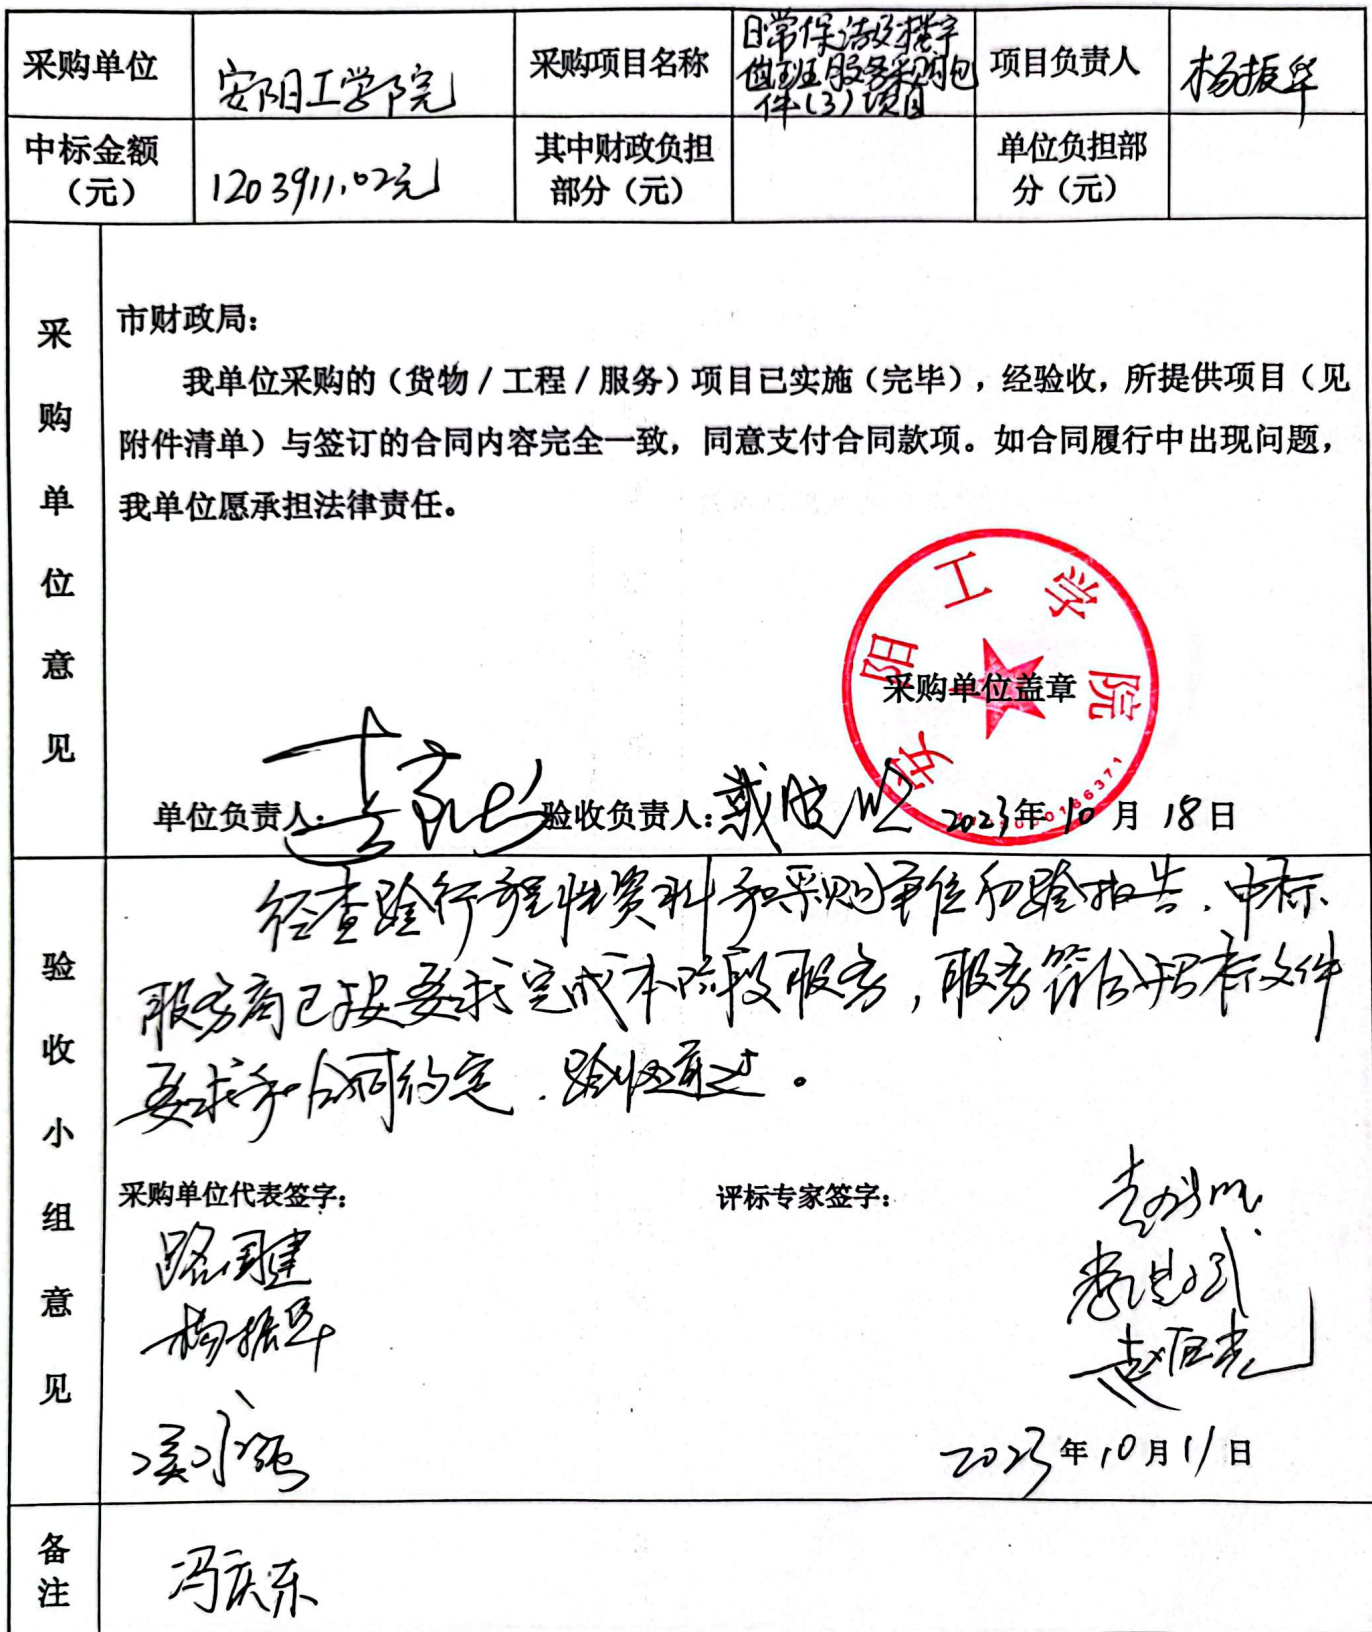 采购单位 安阳工学院 采购项目名称 日常保洁及楼宇值班服务采购包件(3)项目 项目负责人 杨振华
中标金额（元） 1203911.02元 其中财政负担部分（元） 单位负担部分（元）
采购单位意见
市财政局：
我单位采购的（货物／工程／服务）项目已实施（完毕），经验收，所提供项目（见
附件清单）与签订的合同内容完全一致，同意支付合同款项。如合同履行中出现问题，
我单位愿承担法律责任。
安阳工学院
采购单位盖章
单位负责人： 验收负责人： 2023年10月18日
验收小组意见
经查验行程性资料和采购单位初验报告，中标
服务商已按要求完成本阶段服务，服务符合招标文件
要求和合同约定，验收通过。
采购单位代表签字： 评标专家签字：
路国建
杨振华
2023年10月11日
备注 冯庆东